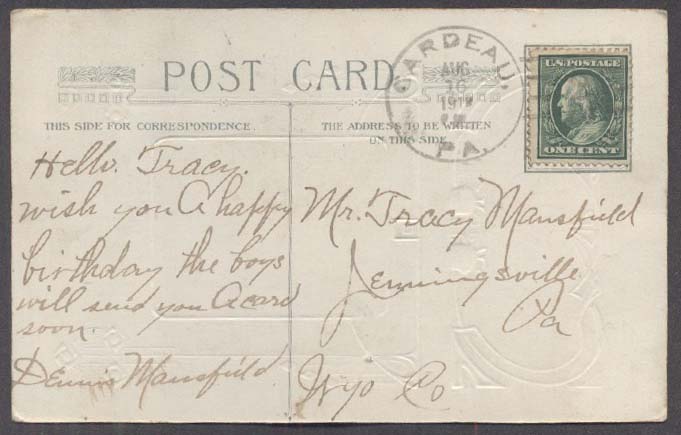 POST CARD
THIS SIDE FOR CORRESPONDENCE.
THE ADDRESS TO BE WRITTEN
ON THIS SIDE
GARDEAU,
AUG
16
PA.
U.S. POSTAGE
ONE CENT
Hello. Tracy.
wish you A happy
birthday the boys
will send you A card
soon.
Dennis Mansfield
Mr. Tracy Mansfield
Jenningsville
Pa
Wyo Co